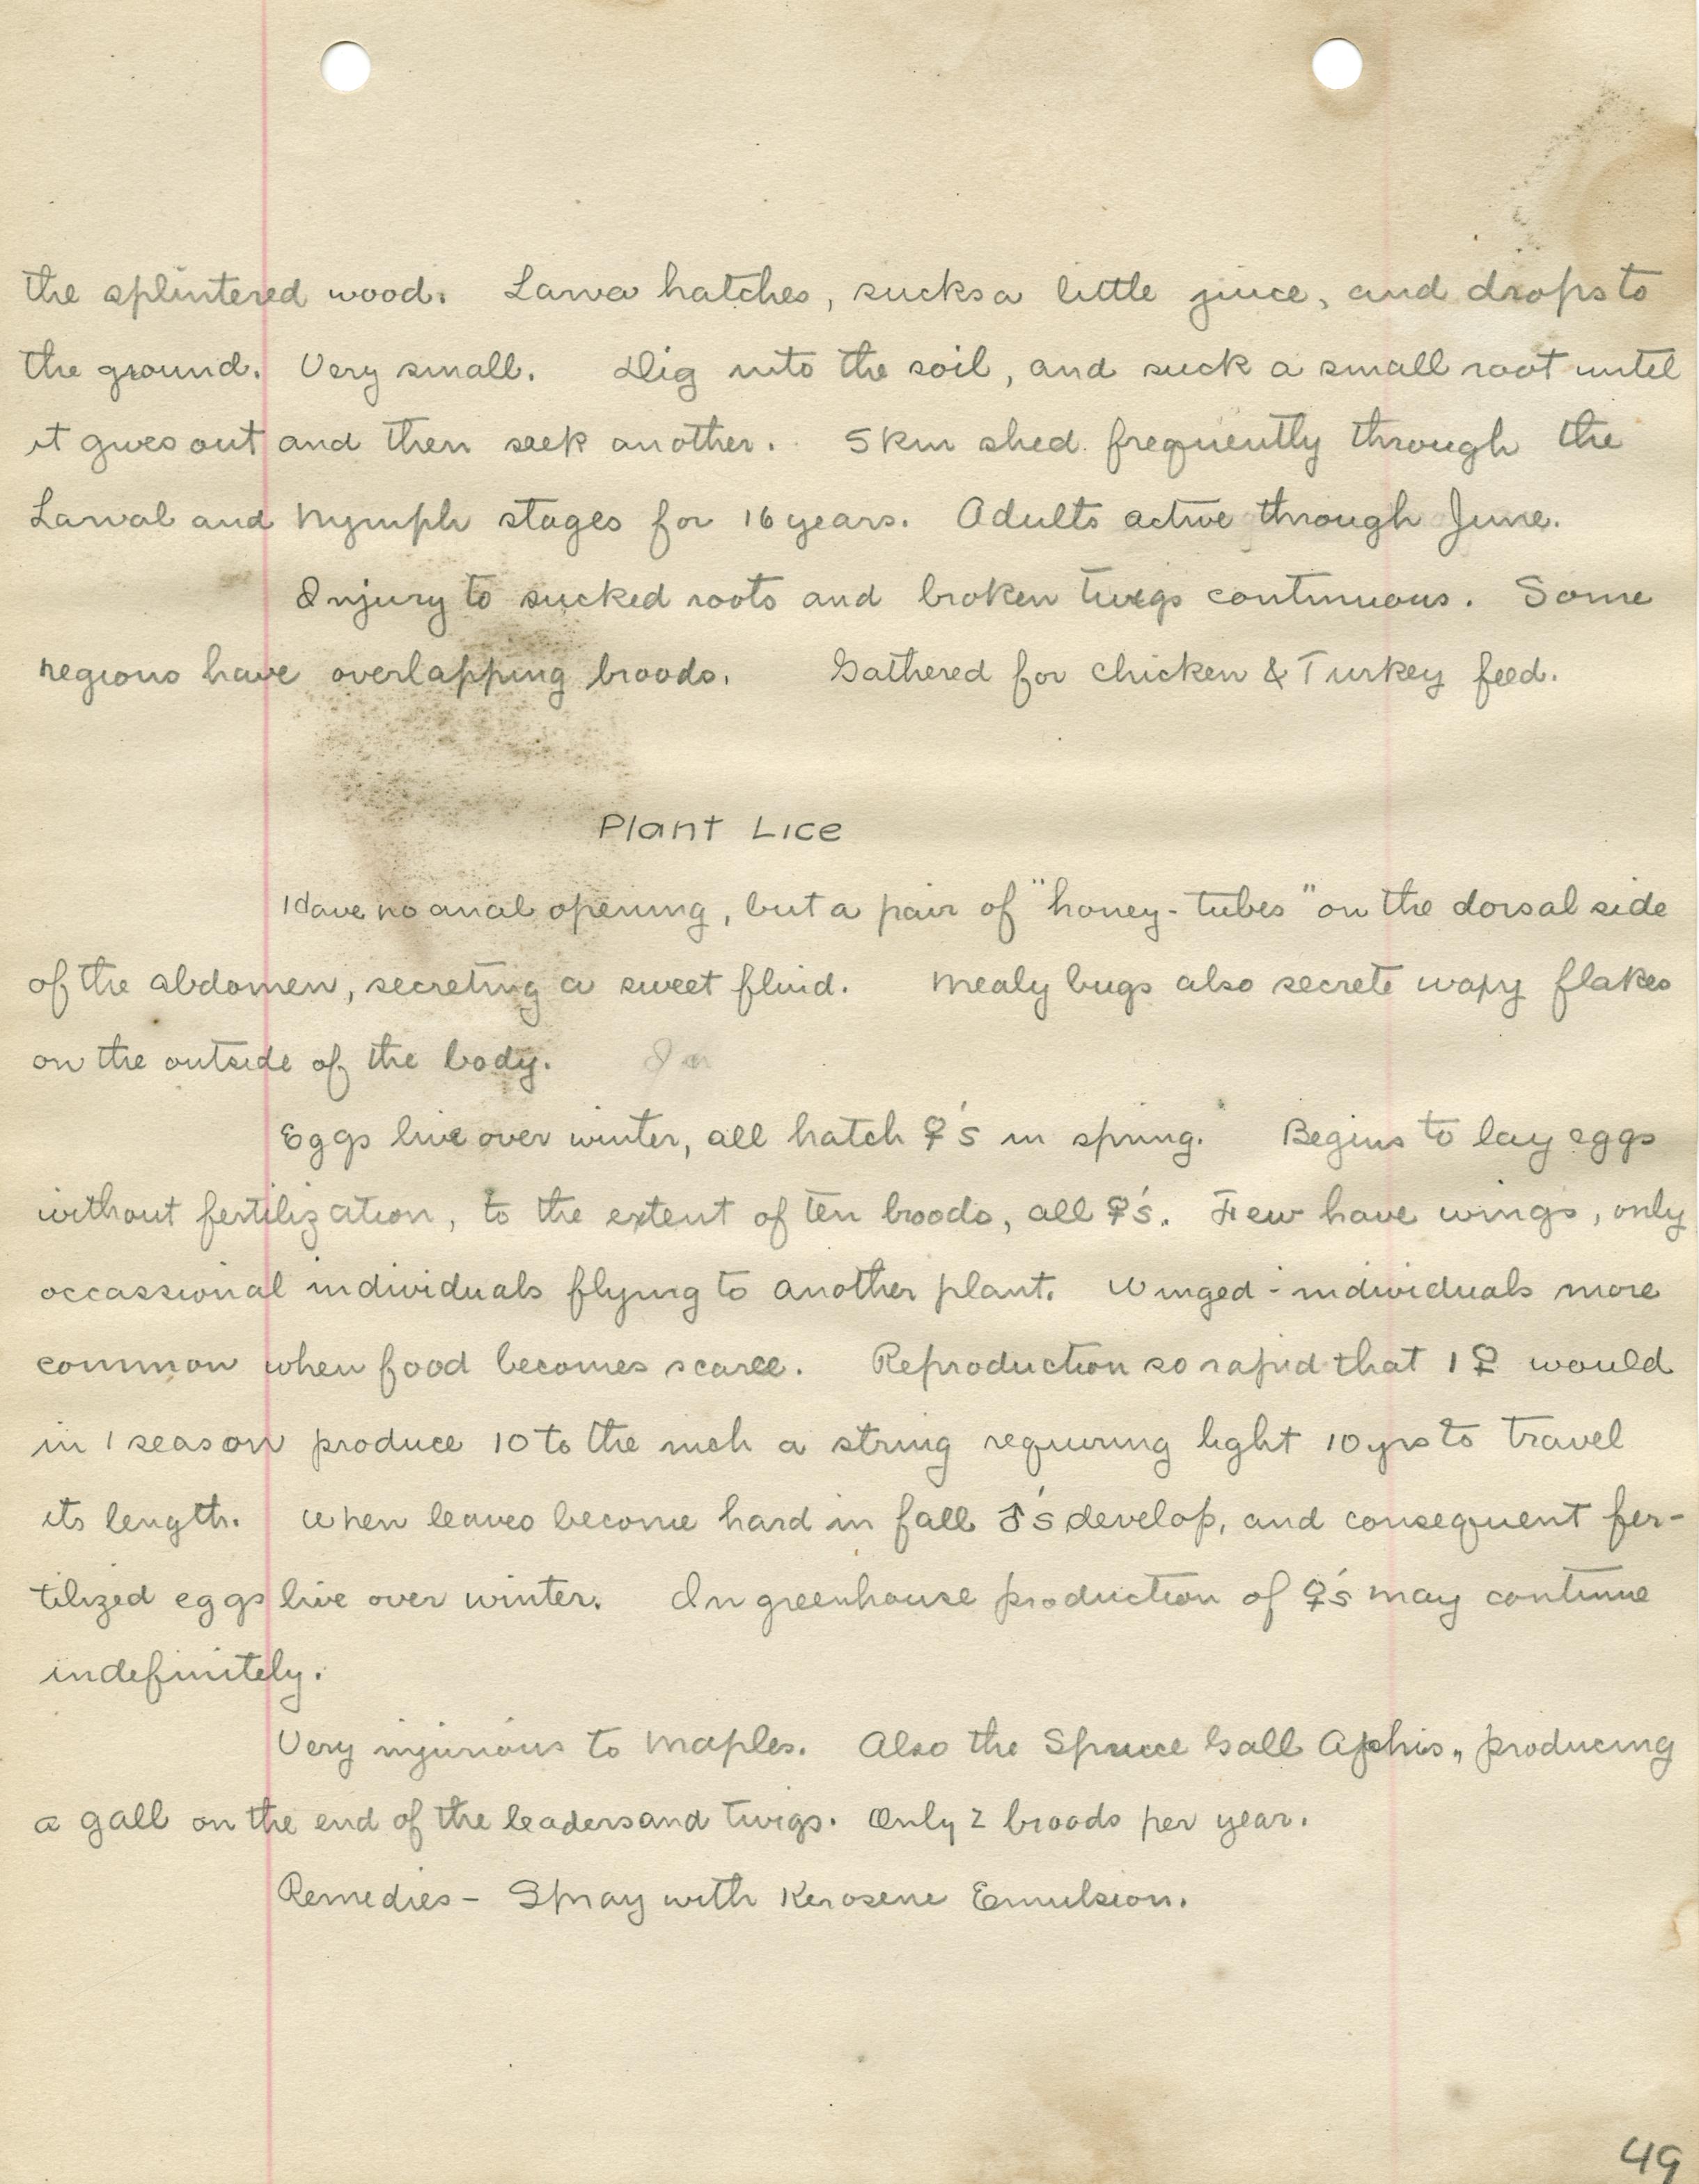 the splintered wood. Larva hatches, sucks a little juice, and drops to
the ground. Very small. Dig into the soil, and suck a small root until
it gives out and then seek another. Skin shed frequently through the
Larval and Nymph stages for 16 years. Adults active through June.
Injury to sucked roots and broken twigs continuous. Some
regions have overlapping broods. Gathered for chicken & Turkey feed.
Plant Lice
Have no anal opening, but a pair of "honey-tubes" on the dorsal side
of the abdomen, secreting a sweet fluid. Mealy bugs also secrete waxy flakes
on the outside of the body. In
Eggs live over winter, all hatch ♀'s in spring. Begins to lay eggs
without fertilization, to the extent of ten broods, all ♀'s. Few have wings, only
occassional individuals flying to another plant. Winged-individuals more
common when food becomes scarce. Reproduction so rapid that 1 ♀ would
in 1 season produce 10 to the inch a string requiring light 10 yrs to travel
its length. When leaves become hard in fall ♂'s develop, and consequent fer-
tilized eggs live over winter. In greenhouse production of ♀'s may continue
indefinitely.
Very injurious to Maples. Also the Spruce Gall Aphis, producing
a gall on the end of the leaders and twigs. Only 2 broods per year.
Remedies - Spray with Kerosene Emulsion.
49